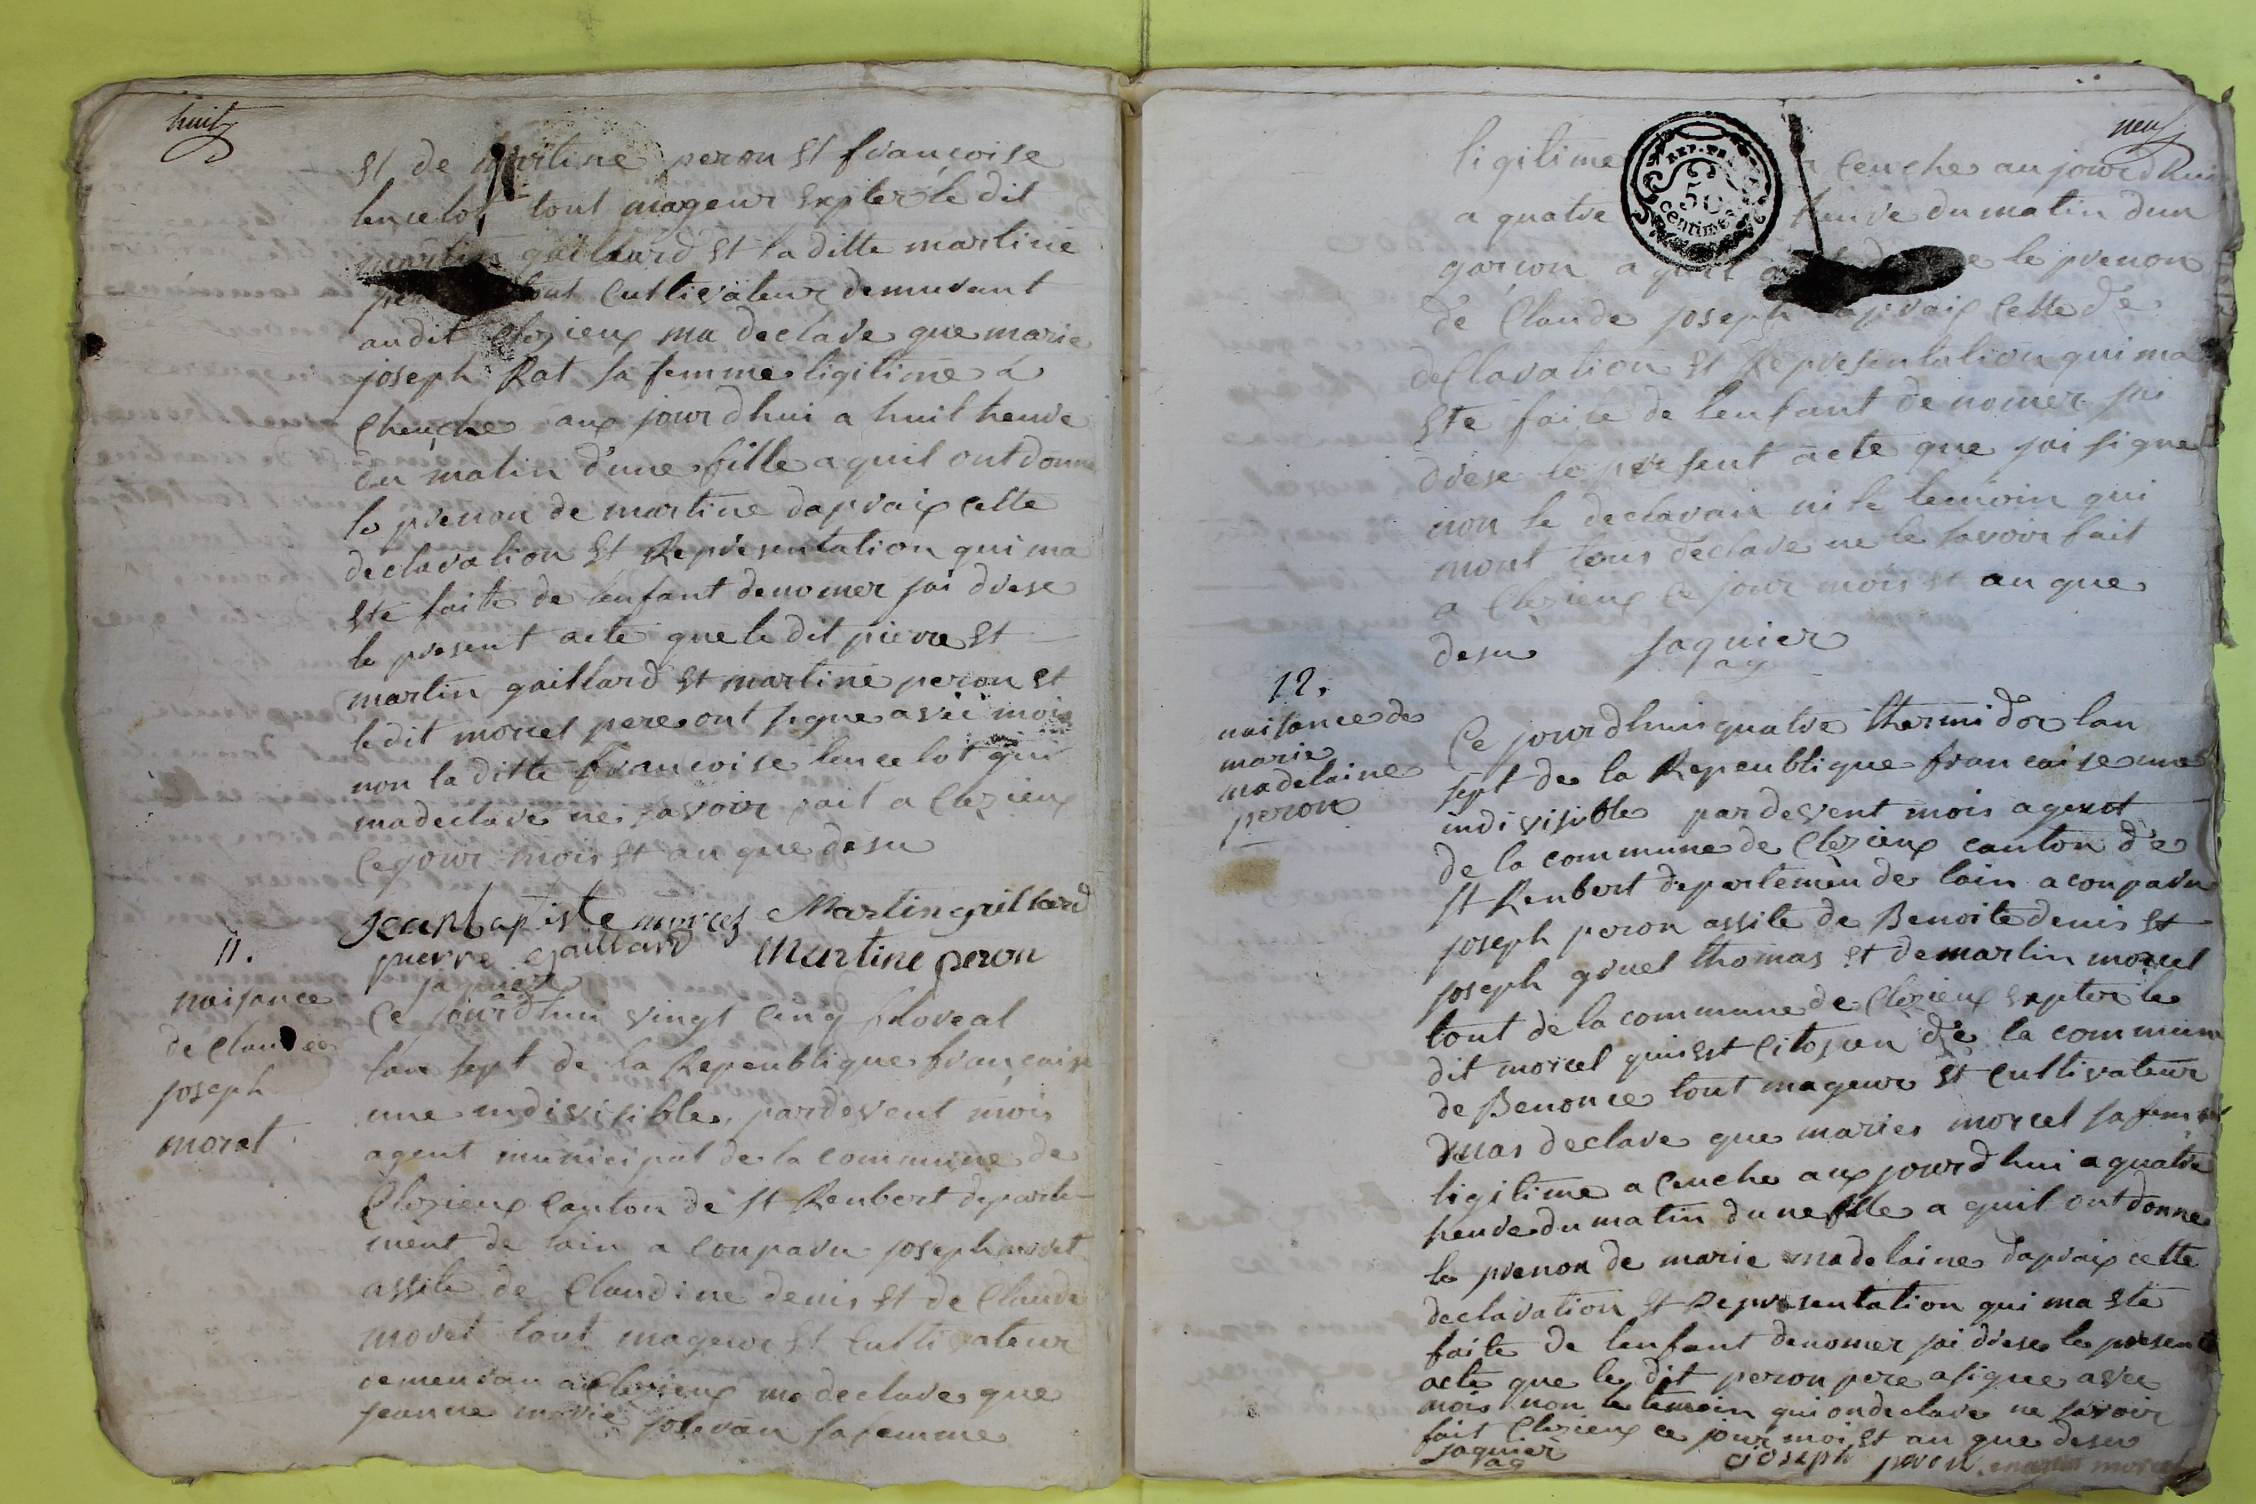 huit
Et de martine peron Et françoise
lencelot tout mageur Expter le dit
martin gaillard Et la ditte martine
tout Cultivateur demurant
audit Clezieux ma declare que marie
joseph Rat sa femme ligitime a
Cheuche aux jourdhui a huit heure
du matin d'une fille a quil ont donne
le prenon de martine daprais cette
declaration Et Representation qui ma
Ete faite de lenfant denomer jai drese
le present acte que le dit pierre Et
martin gaillard Et martine peron Et
le dit morcel pere ont signe avec mois
non la ditte francoise lencelot qui
ma declare ne savoir fait a Clezieux
Ce jour mois Et an que desu
jean baptiste morcel Martin gaillard
pierre gaillard Martine peron
jaquier
ag
11.
naisance
de Claude
joseph
moret
Ce jourdhui vingt Cinq floreal
lan sept de la Republique francaise
une indivisible, pardevent mois
agent municipal de la commune de
Clezieux Canton de St Renbert departe-
ment de lain a Conparu joseph moret
assite de Claudine denis Et de Claude
moret tout mageur Et Cultivateur
demeuran a Clezieux ma declare que
jeanne marie sa femme
neuf
ligitime a Ceuche aujourdhui
a quatre heure du matin dun
garçon a quil le prenon
de Claude joseph daprais Cette
declaration Et Representation qui ma
Ete faite de lenfant denomer jai
drese le present acte que jai signe
non le declarain ni le temoin qui
mont tous declare ne le savoir fait
a Clezieux Ce jour mois Et an que
desu jaquier
ag
12.
naisance de
marie
madelaine
peron
Ce jourdhui quatre thermidor lan
sept de la Repeublique francaise une
indivisible pardevent mois agent
de la commune de Clezieux canton de
St Renbert departemen de lain a conparu
joseph peron assite de Benoite denis Et
joseph gruel thomas Et de martin morcel
tout de la commune de Clezieux Expter le
dit morcel qui Est Citoyen de la commune
de Benonce tout mageur Et Cultivateur
mas declare que maries morcel sa femme
ligitime a Ceuche aux jourdhui a quatre
heure du matin dune fille a quil ont donne
le prenon de marie madelaine daprais cette
declaration Et Representation qui ma Ete
faite de lenfant denomer jai drese le present
acte que le dit peron pere a signe avec
mois non le temoin qui on declare ne savoir
fait Clezieux ce jour moi Et an que desu
jaquier joseph peron martin morcel
ag
REP.
50
centimes